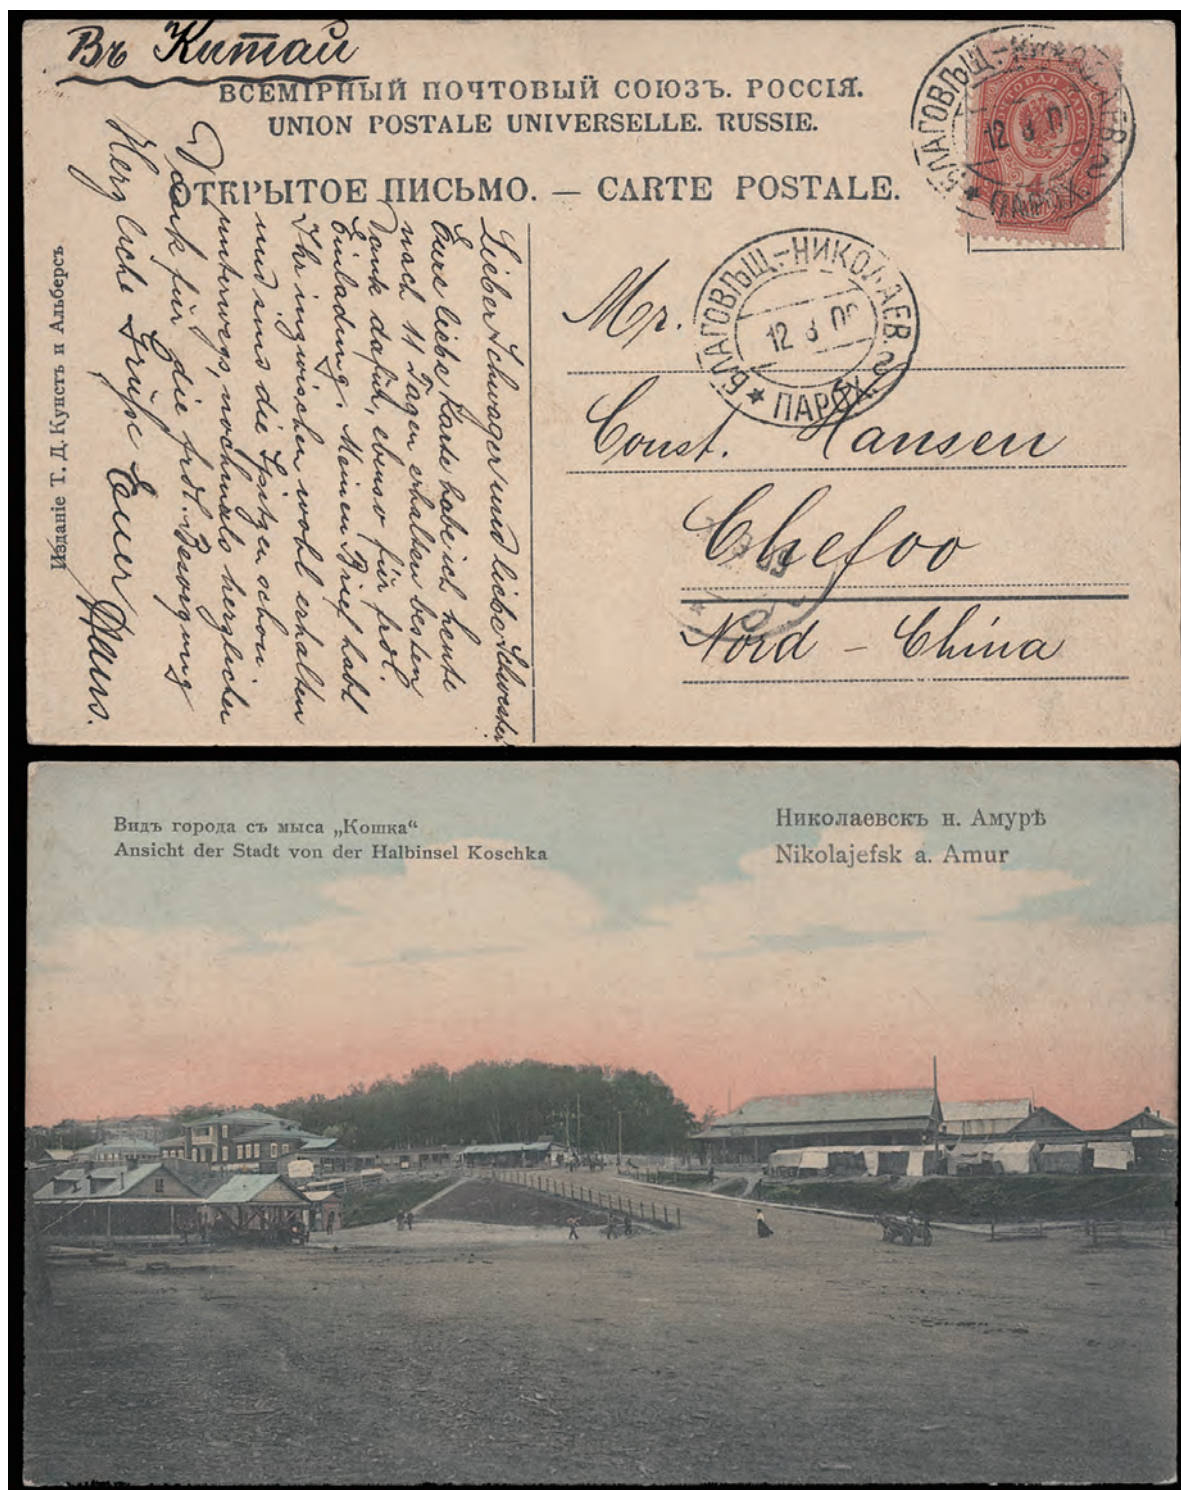 Въ Китай
ВСЕМІРНЫЙ ПОЧТОВЫЙ СОЮЗЪ. РОССІЯ.
UNION POSTALE UNIVERSELLE. RUSSIE.
ОТКРЫТОЕ ПИСЬМО. — CARTE POSTALE.
БЛАГОВѢЩ.-НИКОЛАЕВ. 2
12 8
★ ПАРОХ.
БЛАГОВѢЩ.-НИКОЛАЕВ. 2
12 8
★ ПАРОХ.
Mr.
Const. Hansen
Chefoo
Nord - China
Lieber Schwager und liebe Schwester!
Eure liebe Karte habe ich heute
nach 11 Tagen erhalten besten
Dank dafür, ebenso für frdl.
Einladung. Meinen Brief habt
Ihr inzwischen wohl erhalten
und sind die Spitzen schon
unterwegs, nochmals herzlichen
Dank für die frdl. Besorgung
Herzliche Grüße Euer Hans.
Изданіе Т. Д. Кунстъ и Альберсъ
Видъ города съ мыса „Кошка“
Ansicht der Stadt von der Halbinsel Koschka
Николаевскъ н. Амурѣ
Nikolajefsk a. Amur